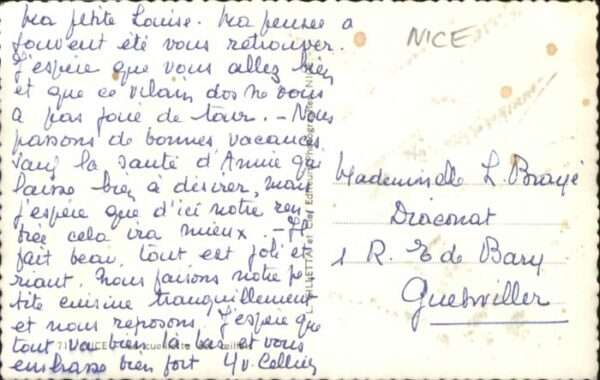 Ma petite Louise. Ma pensée a
souvent été vous retrouver.
J'espère que vous allez bien
et que ce vilain dos ne vous
a pas joué de tour. - Nous
passons de bonnes vacances
sauf la santé d'Annie qui
laisse bien à désirer, mais
j'espère que d'ici notre ren
trée cela ira mieux. - Il
fait beau, tout est joli et
riant. Nous faisons notre pe
tite cuisine tranquillement
et nous reposons. J'espère que
tout va bien là bas et vous
embrasse bien fort
NICE
Mademoiselle L.
Diaconat
1 R. E de Bary
Guebwiller